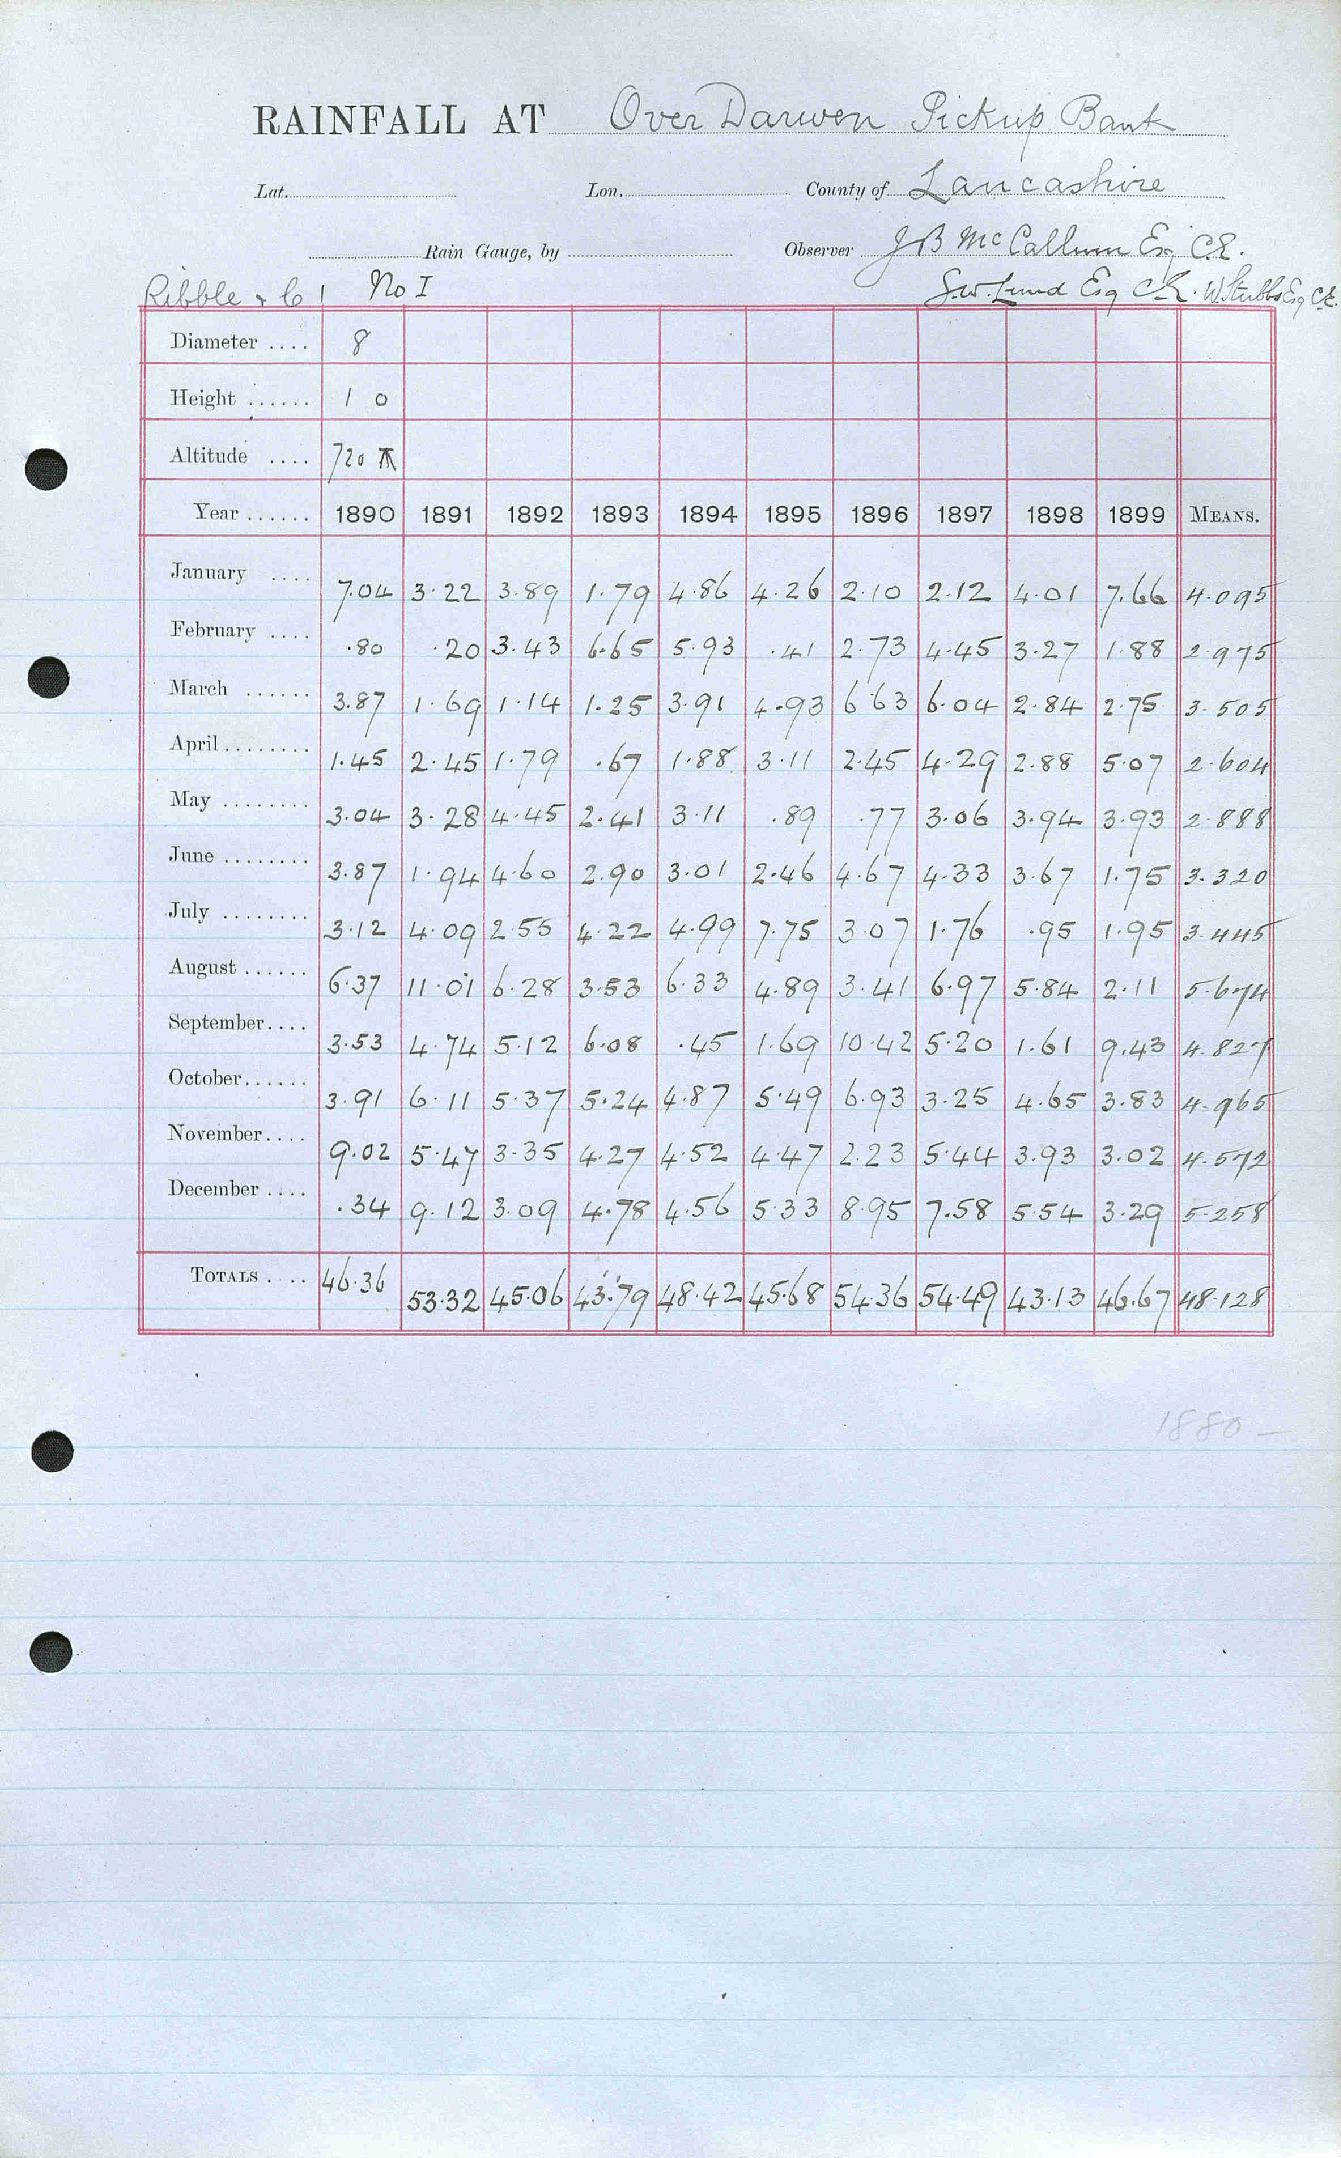 RAINFALL AT Over Darwen Pickup Bank
Lat. Lon. County of Lancashire
Rain Gauge, by Observer J B McCallum Esq C.E.
Ribble & C 1 No I S.W. Lund Esq C.E. W. Stubbs Esq C.E.
Diameter .... 8
Height ...... 1 0
Altitude .... 720
Year ...... 1890 1891 1892 1893 1894 1895 1896 1897 1898 1899 MEANS.
January .... 7.04 3.22 3.89 1.79 4.86 4.26 2.10 2.12 4.01 7.66 4.095
February .... .80 .20 3.43 6.65 5.93 .41 2.73 4.45 3.27 1.88 2.975
March ...... 3.87 1.69 1.14 1.25 3.91 4.93 6.63 6.04 2.84 2.75 3.505
April........ 1.45 2.45 1.79 .67 1.88 3.11 2.45 4.29 2.88 5.07 2.604
May ........ 3.04 3.28 4.45 2.41 3.11 .89 .77 3.06 3.94 3.93 2.888
June ........ 3.87 1.94 4.60 2.90 3.01 2.46 4.67 4.33 3.67 1.75 3.320
July ........ 3.12 4.09 2.55 4.22 4.99 7.75 3.07 1.76 .95 1.95 3.445
August ...... 6.37 11.01 6.28 3.53 6.33 4.89 3.41 6.97 5.84 2.11 5.674
September.... 3.53 4.74 5.12 6.08 .45 1.69 10.42 5.20 1.61 9.43 4.827
October...... 3.91 6.11 5.37 5.24 4.87 5.49 6.93 3.25 4.65 3.83 4.965
November.... 9.02 5.47 3.35 4.27 4.52 4.47 2.23 5.44 3.93 3.02 4.572
December .... .34 9.12 3.09 4.78 4.56 5.33 8.95 7.58 5.54 3.29 5.258
TOTALS .... 46.36 53.32 45.06 43.79 48.42 45.68 54.36 54.49 43.13 46.67 48.128
1880 –